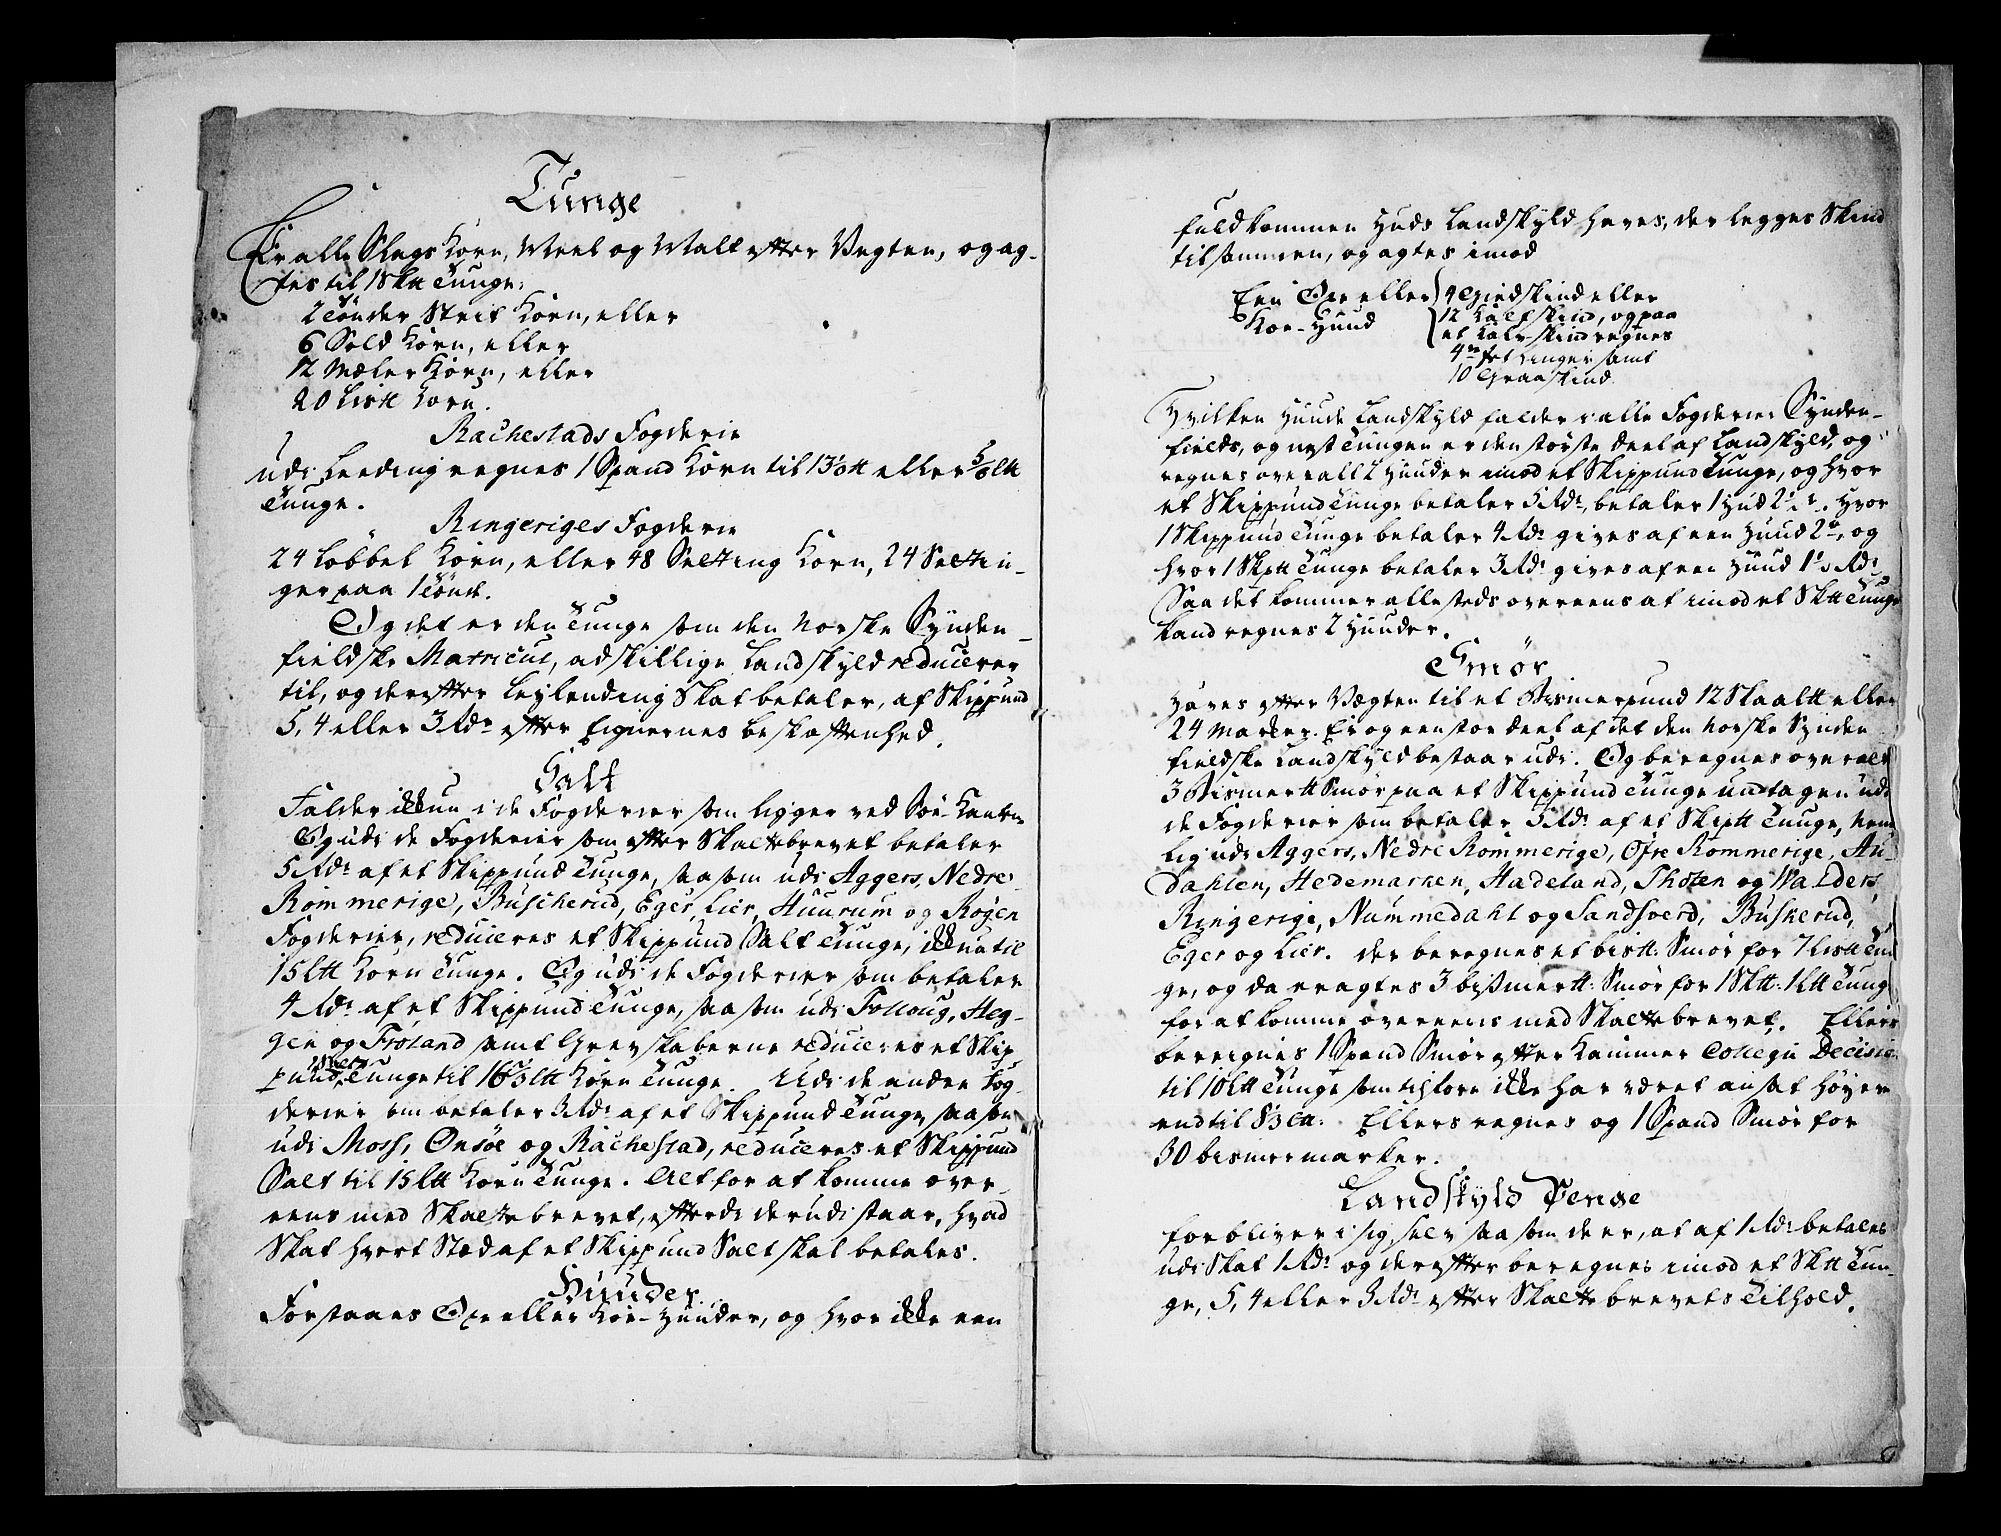 Tunge
Er alle Slags Korn, Meel og Malt efter Vegten, og ag-
tes til 1 Sk℔ Tunge:
2 Tönder Strit Korn, eller
6 Sold Korn, eller
12 Mæler Korn, eller
20 Lis℔ Korn.
Rachestads Fogderie
udi Leeding regnes 1 Spand Korn til 13⅓ ℔ eller L℔
Tunge.
Ringeriges Fogderie
24 Löbbel Korn, eller 48 Setting Korn, 24 Settin-
ger paa 1 Tönde.
Og det er den Tunge som den Norske Synden-
fieldske Matricul, adskillige Landskyld reducerer
til, og derefter Leylending Skat betaler, af Skippund
5, 4 eller 3 Rdr efter Eignernes beskaffenhed.
Salt
Falder ikkun i de Fogderier som ligger ved Söe-Kanten
Og udi de Fogderier som efter Skattebrevet betaler
5 Rdr af et Skippund Tunge, saasom udi Aggers, Nedre-
Rommerige, Buscherud, Eger, Lier, Huurum og Rögen
Fogderier, reduceres et Skippund Salt Tunge, ikkun til
15 L℔ Korn Tunge. Og udi de Fogderier som betaler
4 Rdr af et Skippund Tunge, saasom udi Folloug, Heg-
gen og Fröland samt Grevskaberne reduceres et Skip-
pund Salt Tunge til 16⅔ L℔ Korn Tunge. Udi de andre Fog-
derier som betaler 3 Rdr af et Skippund Tunge, saasom
udi Moss, Onsöe og Rachestad, reduceres et Skippund
Salt til 15 L℔ Korn Tunge. Alt for at komme over-
eens med Skattebrevet, efterdi derudi staar, hvad
Skat hvert Stæd af et Skippund Salt skal betales.
Huuder
Forstaaes Oxe eller Koe-Huuder, og hvor ikke een
fuldkommen Huds Landskyld haves, der legges Skind
tilsammen, og agtes imod
Een Oxe eller
Koe-Huud
4 Giedskind eller
12 Kalfskind, og paa
et Kalv-skind regnes
4re samt
10 Graaskind.
Hvilken Huude Landskyld falder i alle Fogderier Synden-
fields, og nest Tungen er den störste deel af Landskyld, og
regnes overalt 2 Huuder imod et Skippund Tunge, og hvor
et Skippund Tunge betaler 5 Rdr, betaler 1 Hud 2½ r. Hvor
1 Skippund Tunge betaler 4 Rdr gives af een Huud 2 r, og
hvor 1 Skp℔ Tunge betaler 3 Rdr gives af een Huud 1½ Rdr
Saa det kommer allesteds overeens at imod et Sk℔ Tunge
kand regnes 2 Huuder.
Smör
Haves efter Vægten til et Bismerpund 12 Skaal℔ eller
24 Marker. Er og een stor deel af det den Norske Synden-
fieldske Landskyld bestaar udi. Og beregnes overalt
3 Bismer℔ Smör paa et Skippund Tunge undtagen udi
de Fogderier som betaler 5 Rdr af et Skip℔ Tunge, Nem-
lig udi Aggers, Nedre Rommerige, Öfre Rommerige, Au-
dahlen, Hedemarken, Hadeland, Thoten og Walders,
Ringerige, Nummedahl og Sandsverd, Buskerud,
Eger og Lier. der beregnes et bis℔: Smör for 7 Lis℔ Tun-
ge, og da eragtes 3 bismer℔: Smör for 1 Sk℔: 1 L℔ Tunge
for at komme overeens med Skattebrevet. Ellers
beregnes 1 Spand Smör efter Kammer Collegii Decision
til 10 L℔ Tunge som tilforn ikke har været ansat höyere
end til 8⅓ L℔. Ellers regnes og 1 Spand Smör for
30 bismermarker.
Landskyld Penge
forbliver i sig selv saasom de er, at af 1 Rdr betales
udi Skat 1 Rdr og derefter beregnes imod et Sk℔ Tun-
ge, 5, 4 eller 3 Rdr efter Skattebrevets Tilhold.